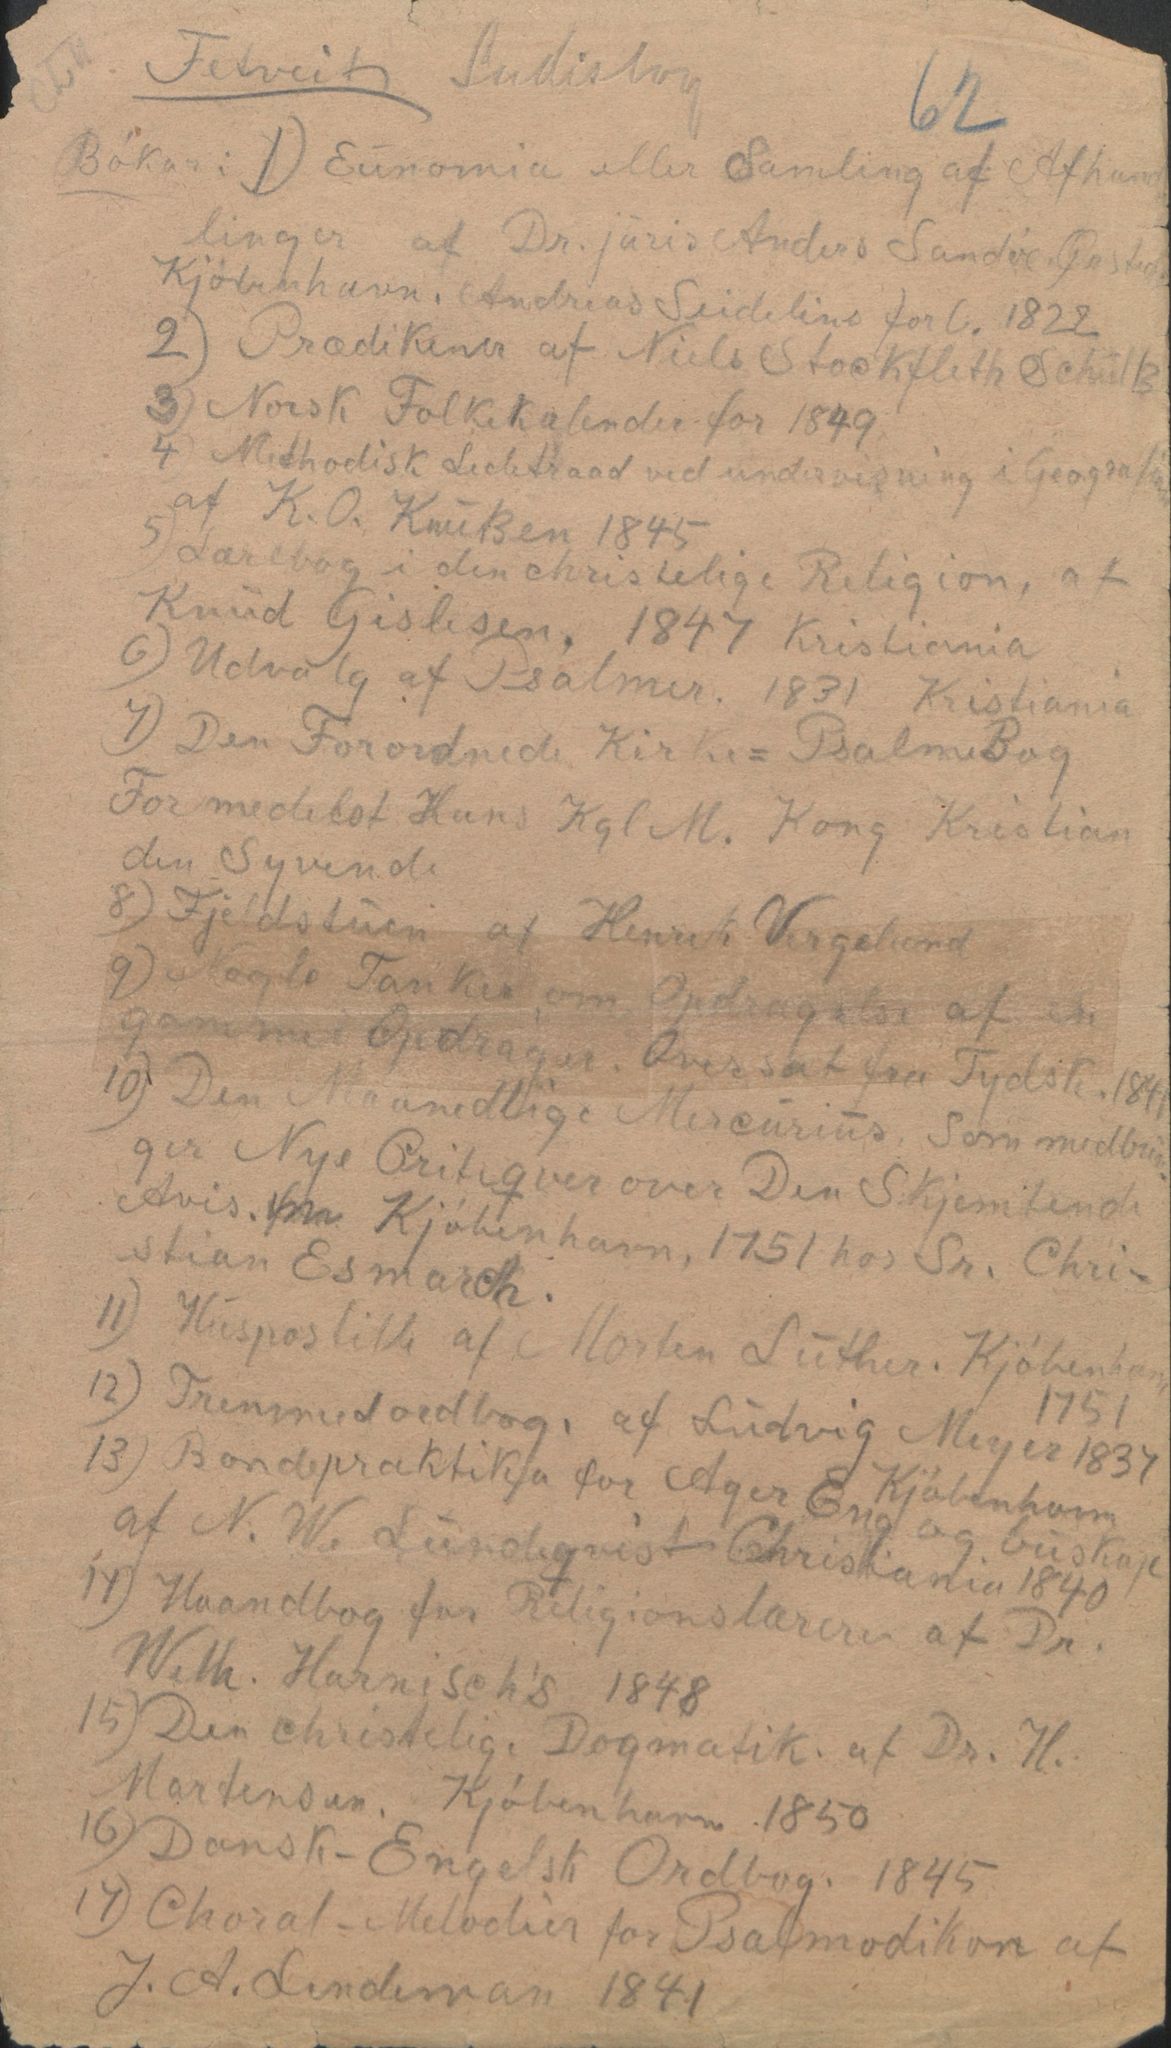 Fetveit Ludisbog 62
Bókar: 1) Eŭnomia eller Samling af Afhand
linger af Dr. jŭris Anders Sandöe Ørsted
Kjöbenhavn. Andreas Seidelins forl. 1822
2) Prædikener af Niels Stockfleth Schŭltz
3) Norsk Folkekalender for 1849
4 Methodisk Ledetraad ved undervisning i Geografien
af K. O. Knŭtzen 1845
5) Lærebog i den christelige Religion, af
Knŭd Gislesen, 1847 Kristiania
6) Udvalg af Psalmer. 1831 Kristiania
7) Den Forordnede Kirke= PsalmeBog
Formedelst Hans Kgl M. Kong Kristian
den Syvende
8) Fjeldstŭen af Henrik Vergeland
9) Nogle Tanker om Opdragelse af en
gammel Opdrager. Oversat fra Tydsk. 1841
10) Den Maanedlige Mercŭriŭs, Som medbrin
ger Nye Critiqver over Den Skjemtende
Avis. Kjóbenhavn, 1751 hos Sr. Chri-
stian Esmarch.
11) Hŭspostille af Morten Lŭther. Kjóbenhavn
1751
12) Fremmedordbog. af Lŭdvig Meyer 1837
Kjóbenhavn
13) Bondepraktika for Ager Eng og bŭskap
af N. W. Lŭndeqvist Christiania 1840
14) Haandbog for Religionslærere af Dr.
Wilh. Harnisch's 1848
15) Den christelige Dogmatik. af Dr. H.
Martensen. Kjóbenhavn 1850
16) Dansk-Engelsk Ordbog. 1845
17) Choral-Melodier for Psalmodikon af
J. A. Lindeman 1841